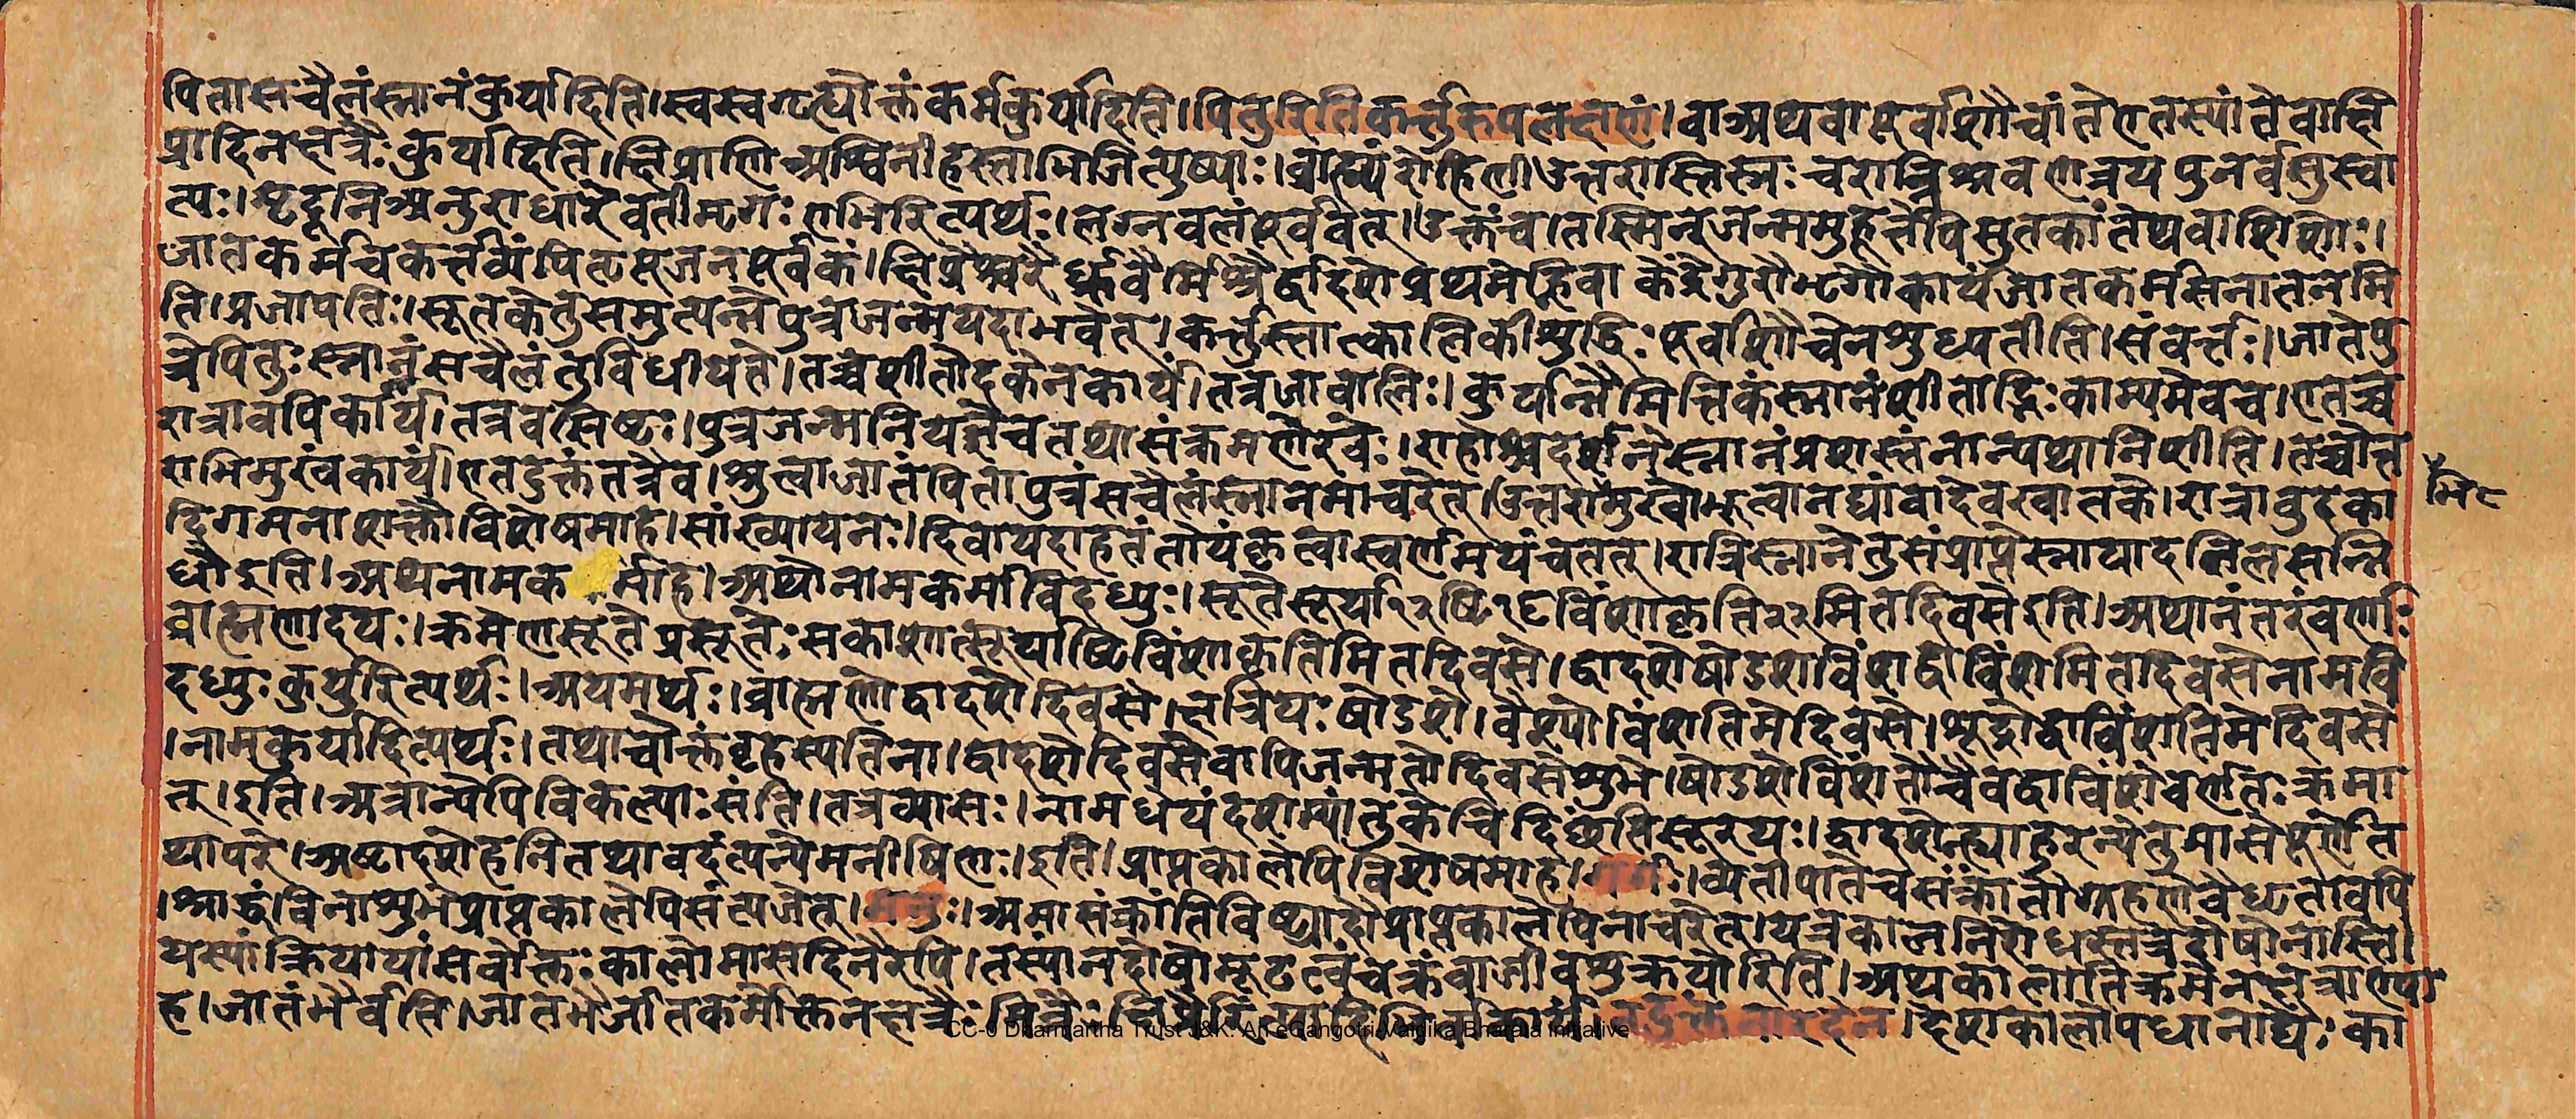 पितासचैलंस्नानंकुर्यादिति।स्वस्वगृह्योक्तंकर्मकुर्यादिति।पितुरितिकर्त्तुरुपलक्षणं।वाअथवापूर्वाशौचांतेएतस्यांतेवाक्षि
प्रादिनक्षत्रैःकुर्यादिति।क्षिप्राणिअश्विनीहस्ताभिजित्पुष्याः।ब्राह्म्यंरोहिणी।उत्तरास्तिस्रःचरान्त्रिश्रवणत्रयपुनर्वसुस्वा
त्यः।मृदूनिअनुराधारेवतीमृगःएभिरित्यर्थः।लग्नबलंपूर्ववत्।उक्तंच।तस्मिन्जन्ममुहूर्त्तेपिसुतकांतेथवाशिशोः।
जातकर्मचकर्त्तव्यंपितृपूजनपूर्वकं।क्षिप्रैश्चरैर्ध्रुवैर्मैत्रैर्द्वादशेप्रथमेह्निवा केंद्रेगुरौभृगौकार्यंजातकर्मसनातनमि
ति।प्रजापतिः।सूतकेतुसमुत्पन्नेपुत्रजन्मयदाभवेत्।कर्त्तुस्तात्कालिकीशुद्धिःपूर्वाशौचेनशुध्यतीति।संवर्त्तः।जातेपु
त्रेपितुःस्नानंसचैलंतुविधीयते।तच्चशीतोदकेनकार्यं।तत्रजावालिः।कुर्यान्नैमित्तिकंस्नानंशीताद्भिःकाम्यमेवच।एतच्च
रात्रावपिकार्यं।तत्रवसिष्टः।पुत्रजन्मनियज्ञेचतथासंक्रमणेरवेः।राहोश्चदर्शनेस्नानंप्रशस्तंनान्यथानिशीति।तच्चोत्त
राभिमुखंकार्यं।एतदुक्तंतत्रैव।श्रुत्वाजातंपितापुत्रंसचैलंस्नानमाचरेत्।उत्तराभिमुखोभूत्वानद्यांवादेवखातके।रात्रावुदका
दिगमनाशक्तौविशेषमाह।सांख्यायनः।दिवायदाहृतंतोयंकृत्वास्वर्णमयंचतत्।रात्रिस्नानेतुसंप्राप्तेस्नायादनिलसन्नि
धौइति।अथनामक र्माह।अथोनामकर्मविदध्युः।सूतेसूर्या१२ष्टि१६विंशाकृति२२मितेदिवसेइति।अथानंतरंवर्णाः
ब्राह्मणादयः।क्रमेणसूतेप्रसूतेःसकाशात्सूर्याष्टिविंशाकृतिमितदिवसे।द्वादशेषोडशेविंशेद्वाविंशेमितेदिवसेनामवि
दध्युःकुर्युरित्यर्थः।अयमर्थः।ब्राह्मणोद्वादशेदिवसे।क्षत्रियःषोडशे।वैश्यो।विंशतिमेदिवसे।शूद्रोद्वाविंशतिमेदिवसे
।नामकुर्यादित्यर्थः।तथाचोक्तंवृहस्पतिना।द्वादशेदिवसेवापिजन्मतोदिवसेशुभे।षोडशेविंशतौचैवद्वाविंशेवर्णतःक्रमा
त्।इति।अत्रान्येपिविकल्पाःसंति।तत्रव्यासः।नामधेयंदशम्यांतुकेचिदिच्छंतिसूरयः।द्वादशेन्ह्याहुरन्येतुमासेपूर्णेत
थापरे।अष्टादशेहनितथावदंत्यन्येमनीषिणः।इति।प्राप्तकालेपिविशेषमाह।गर्गः।व्यतीपातेचसंक्रांतौग्रहणेवैधृतावपि
।श्राद्धंविनाशुभंप्राप्तकालेपिसंत्यजेत्।मनुः।अमासंक्रांतिविष्ट्यादौप्राप्तकालेपिनाचरेत्।यत्रकालनिरोधस्तत्रदोषोनास्ति।
यस्यांक्रियायांसर्वोक्तःकालोमासदिनैरपि।तस्यांनदोषामूढत्वंवक्रंवाजीवशुक्रयोरिति।अथकालातिक्रमेनक्षत्राण्या
ह।जातंमैर्वेति।जातभैर्जातकर्मोक्तनक्षत्रैःमित्रैःक्षिप्रै तदुक्तंनारदेन।देशकालोपधानाद्यैःका